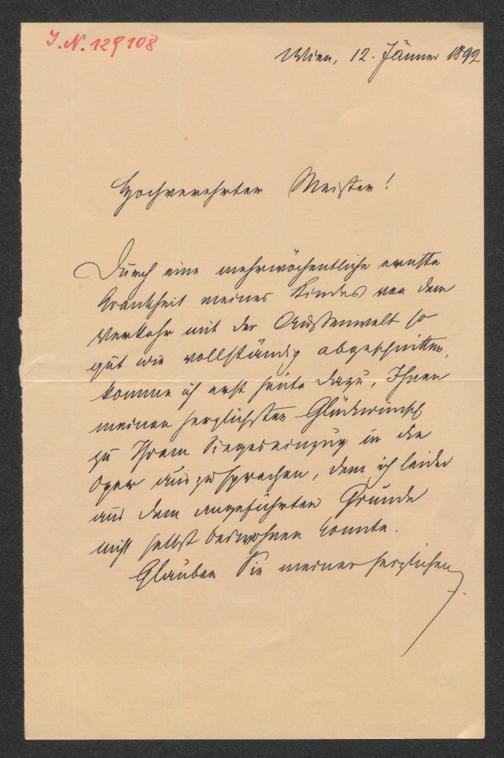 I.N. 129108
Wien, 12. Jänner 1892
Hochverehrter Meister!
Durch eine mehrwöchentliche ernste
Krankheit meines Kindes von dem
Verkehr mit der Aussenwelt so
gut wie vollständig abgeschnitten,
komme ich erst heute dazu, Ihnen
meinen herzlichsten Glückwunsch
zu Ihrem Siegeseinzug in die
Oper auszusprechen, dem ich leider
aus dem angeführten Grunde
nicht selbst beiwohnen konnte.
Glauben Sie meiner herzlichen